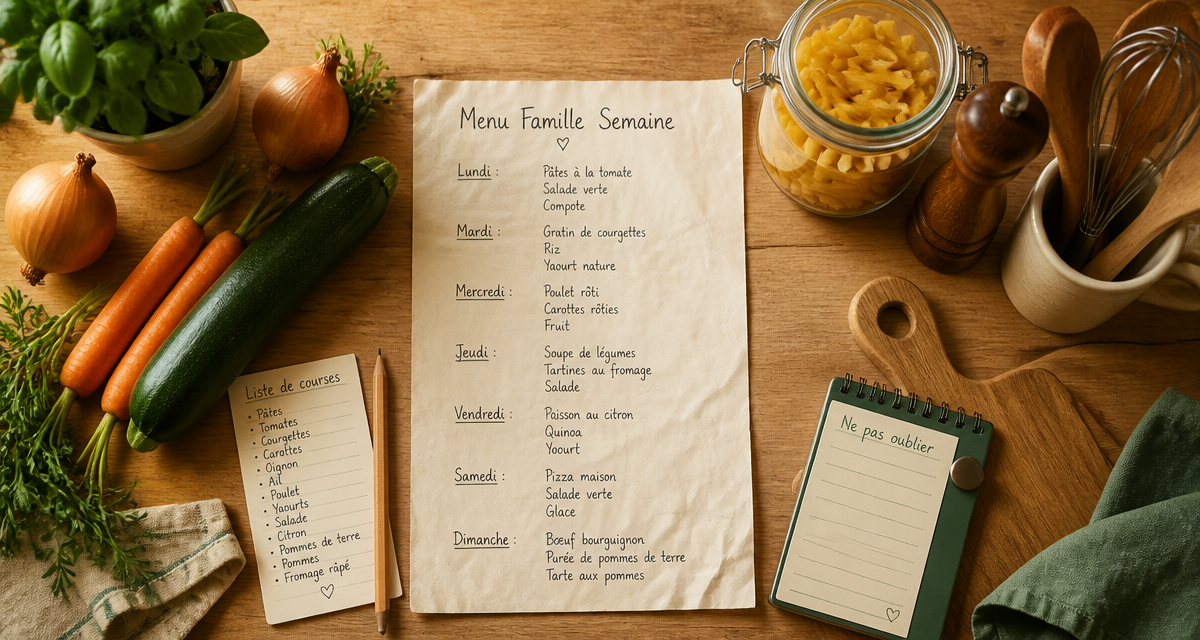 Menu Famille Semaine
Lundi : Pâtes à la tomate
Salade verte
Compote
Mardi : Gratin de courgettes
Riz
Yaourt nature
Mercredi : Poulet rôti
Carottes rôties
Fruit
Jeudi : Soupe de légumes
Tartines au fromage
Salade
Vendredi : Paisson au citron
Quinoa
Yoourt
Samedi : Pizza maison
Salade verte
Glace
Dimanche : Bœuf bourguignon
Purée de pommes de terre
Tarte aux pommes
Liste de courses
• Pâtes
• Tomates
• Courgettes
• Carottes
• Oignon
• Ail
• Poulet
• Yaourts
• Salade
• Citron
• Pommes de terre
• Pommes
• Fromage râpé
Ne pas oublier